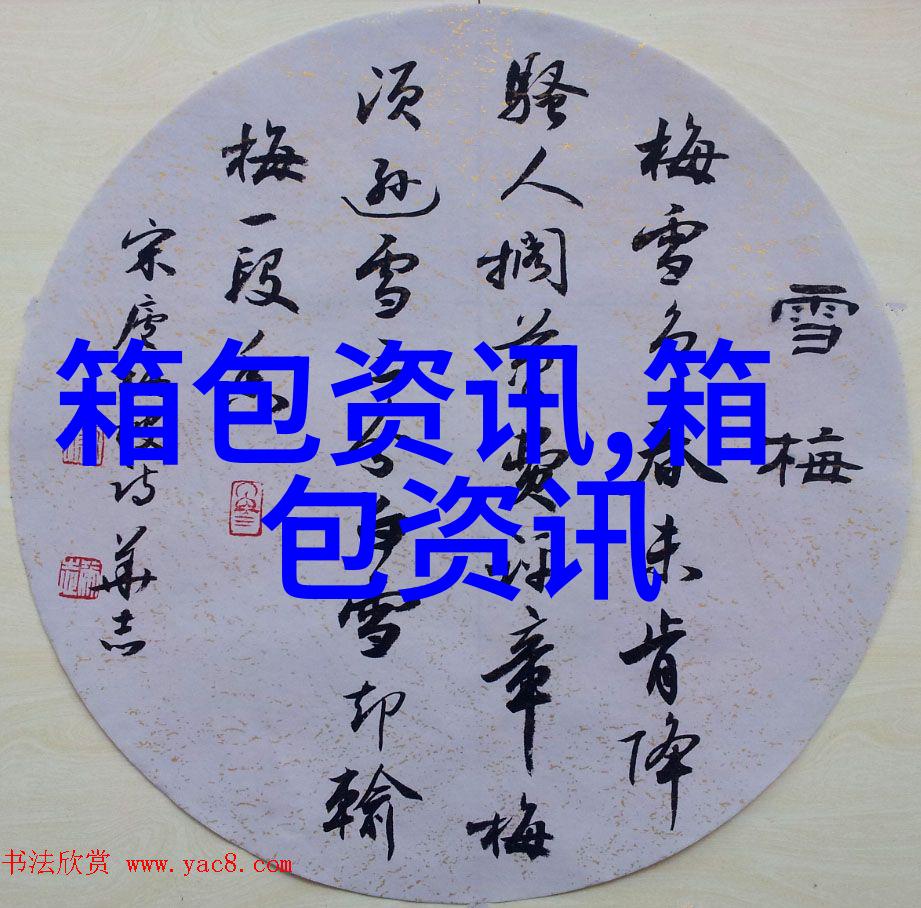 雪梅
梅雪争春未肯降
骚人搁笔费评章梅
须逊雪三分白雪却输
梅一段香
宋卢梅坡诗 華志
箱包资讯,箱
包资讯
书法欣赏 www.yac8.com